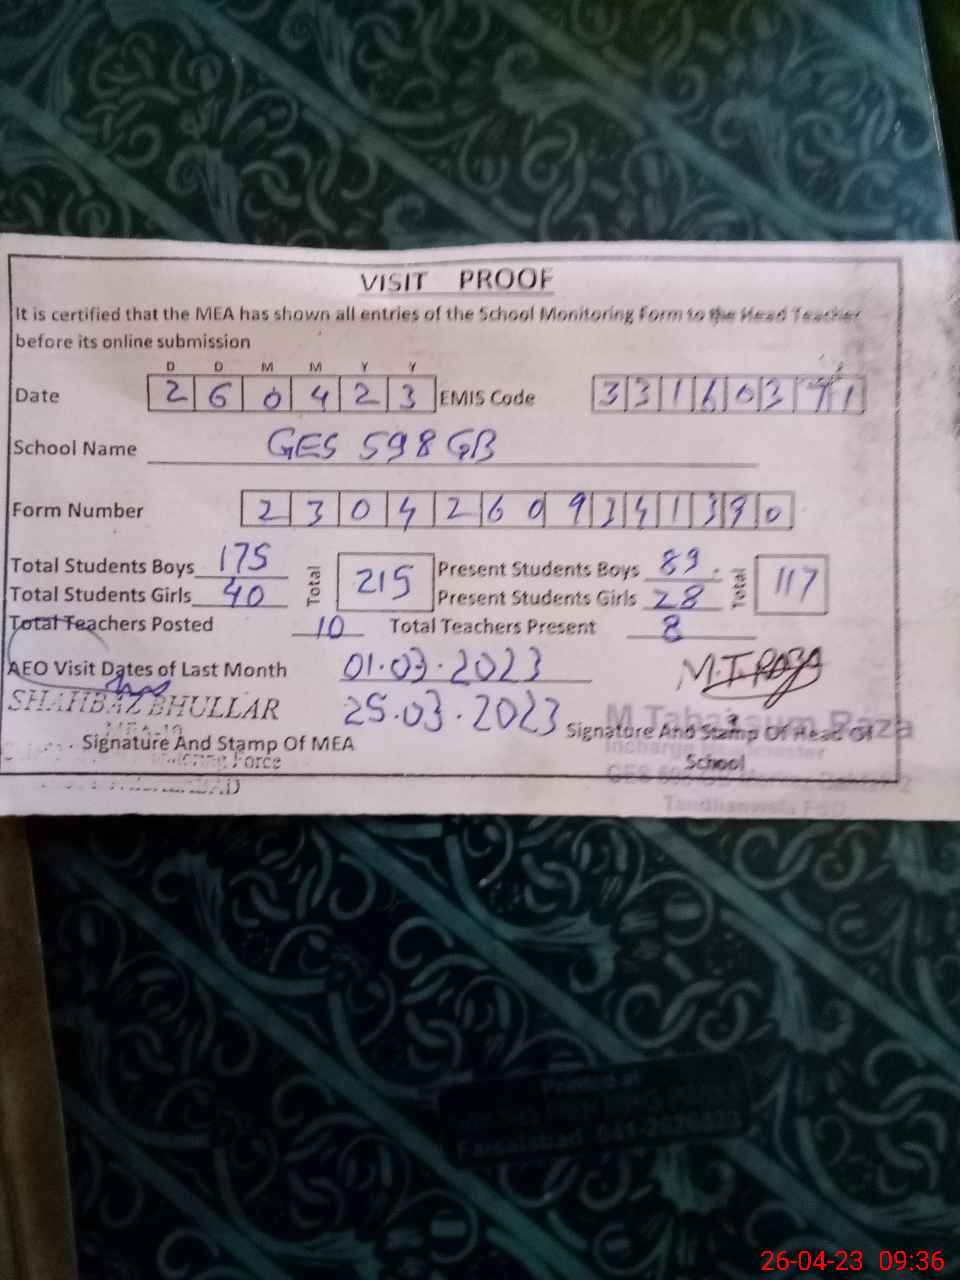 VISIT PROOF
It is certified that the MEA has shown all entries of the School Monitoring Form to the Head Teacher
before its online submission
D D M M Y Y
Date 2 6 0 4 2 3 EMIS Code 3 3 1 6 0 3 7 1
School Name GES 598 GB
Form Number 2 3 0 4 2 6 0 9 3 4 1 3 9 0
Total Students Boys 175 Total 215 Present Students Boys 89 Total 117
Total Students Girls 40 Present Students Girls 28
Total Teachers Posted 10 Total Teachers Present 8
AEO Visit Dates of Last Month 01.03.2023 M.T.RAZA
SHAHBAZ BHULLAR 25.03.2023
M Tabassum Raza
Signature And Stamp Of MEA Signature And Stamp Of Head Of
School
Incharge Headmaster
Force
Tandlianwala FSD
Printed at
Faisalabad
26-04-23 09:36